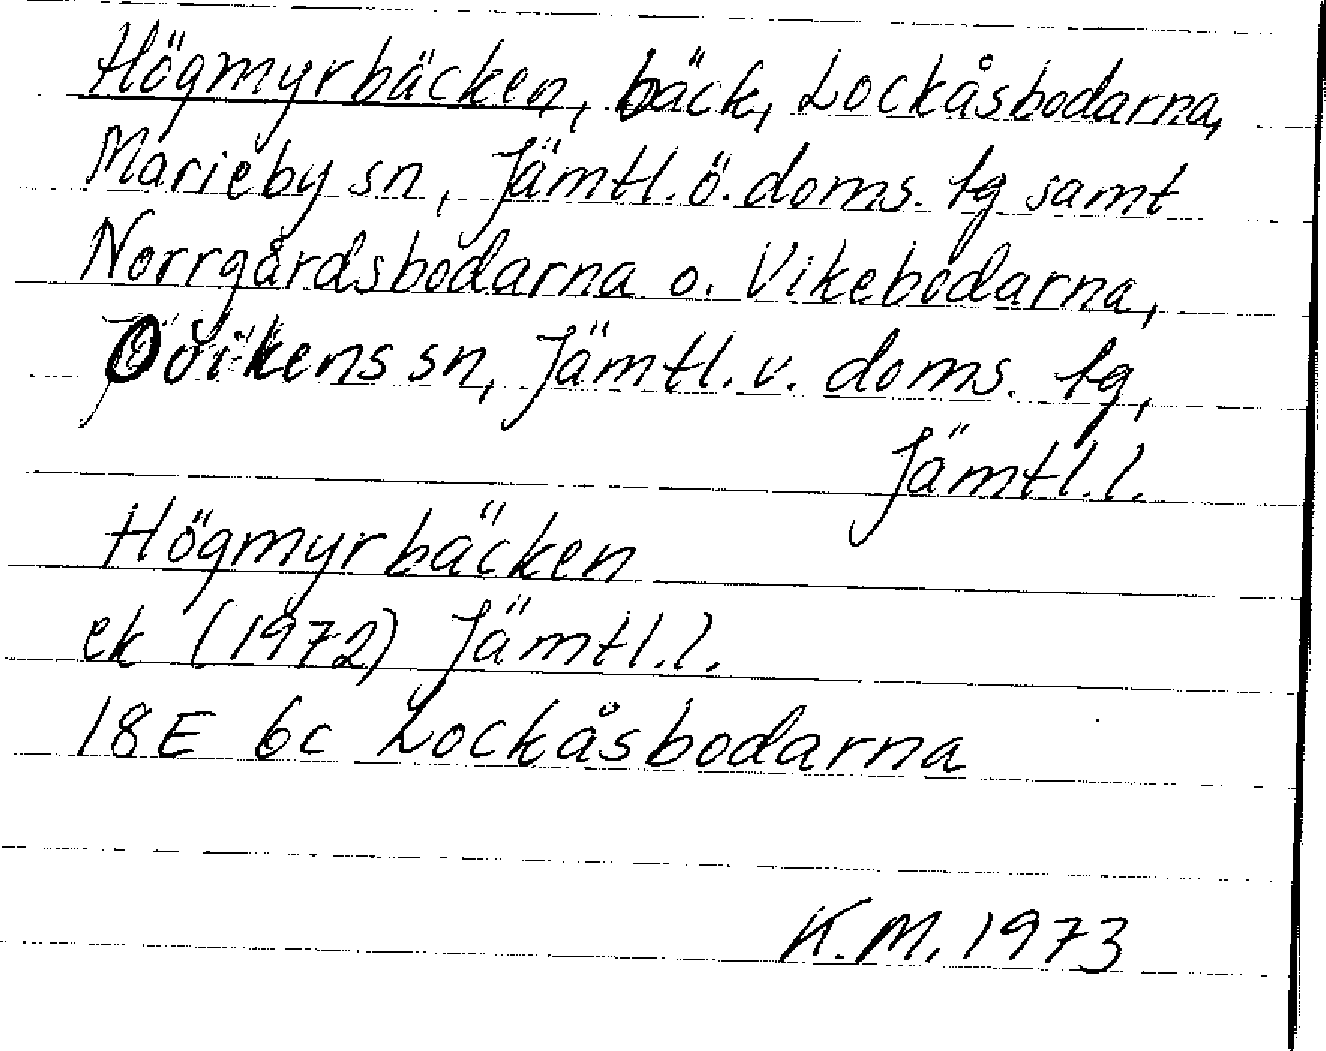 Högmyrbäcken, bäck, Lockåsbodarna,
Marieby sn, Jämtl. ö. doms. tg samt
Norrgårdsbodarna o. Vikebodarna,
Ovikens sn, Jämtl. v. doms. tg,
Jämtl. l.
Högmyrbäcken
ek (1972) Jämtl. l.
18E 6c Lockåsbodarna
K.M. 1973